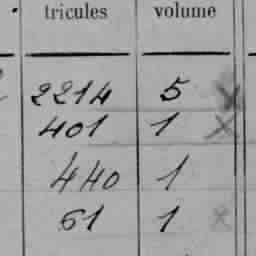 tricules volume
2214 5 x
401 1 x
440 1
61 1 x